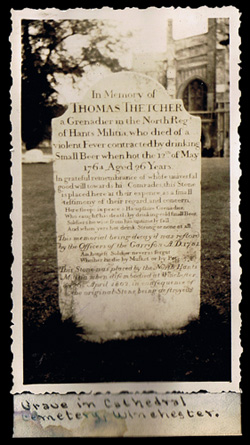 In Memory of
THOMAS THETCHER
a Grenadier in the North Regt.
of Hants Militia, who died of a
violent Fever contracted by drinking
Small Beer when hot the 12th of May
1764. Aged 26 Years.
In grateful remembrance of whose universal
good will towards his Comrades, this Stone
is placed here at their expence, as a small
testimony of their regard and concern.
Here sleeps in peace a Hampshire Grenadier,
Who caught his death by drinking cold small Beer,
Soldiers be wise from his untimely fall
And when ye're hot drink Strong or none at all.
This memorial being decay'd was restor'd
by the Officers of the Garrison A.D. 1781.
An honest Soldier never is forgot
Whether he die by Musket or by Pot.
This Stone was placed by the North Hants
Militia when disembodied at Winchester
April 1802, in consequence of
the original Stone being destroyed
Grave in Cathedral
Cemetery, Winchester.